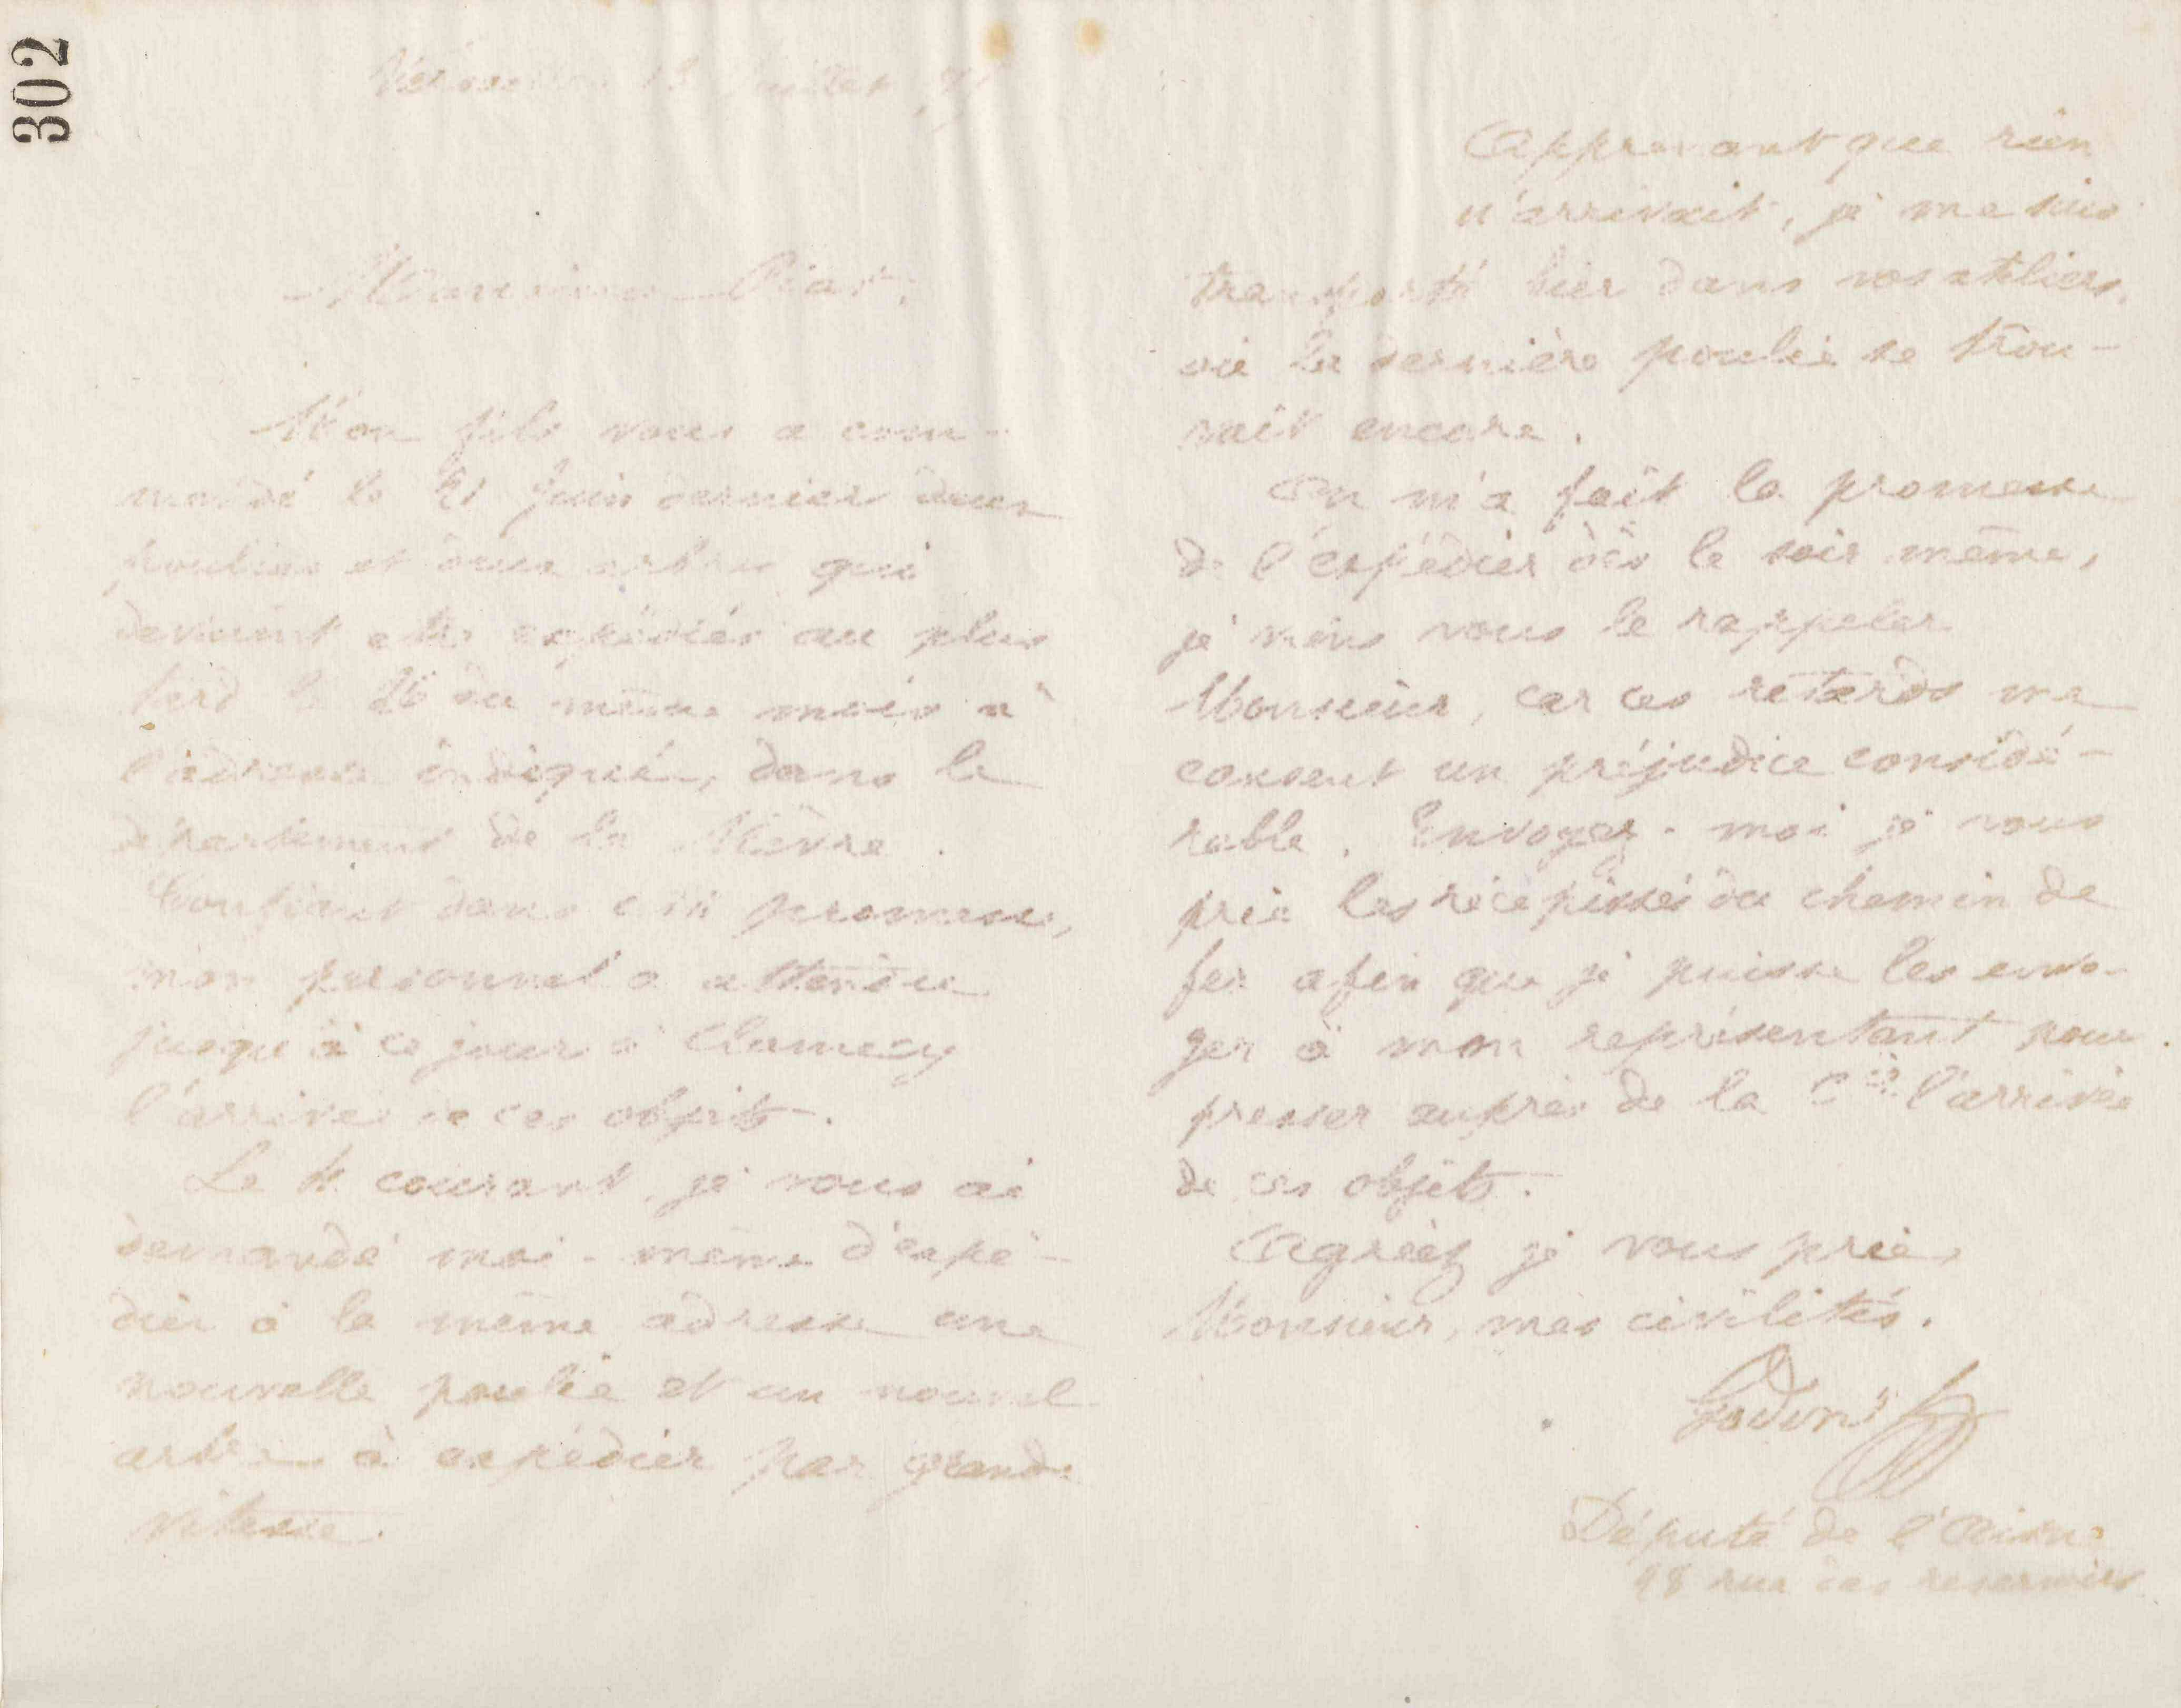 302
Versailles 12 juillet 71
Monsieur Piat,
Mon fils vous a com-
mandé le 21 Juin dernier deux
poulies et deux arbres qui
devaient être expédiés au plus
tard le 26 du même mois à
l'adresse indiquée, dans le
département de la Nièvre.
Confiant dans cette promesse,
mon personnel a attendu
jusqu'à ce jour à Clamecy
l'arrivée de ces objets.
Le 4 courant, je vous ai
demandé moi-même d'expé-
dier à la même adresse une
nouvelle poulie et un nouvel
arbre à expédier par grande
vitesse.
Apprenant que rien
n'arrivait, je me suis
transporté hier dans vos ateliers,
où la dernière poulie se trou-
vait encore.
On m'a fait la promesse
de l'expédier dès le soir même,
je viens vous le rappeler
Monsieur, car ces retards me
causent un préjudice considé-
rable. Envoyez-moi je vous
prie les récépissés du chemin de
fer afin que je puisse les envo-
yer à mon représentant pour
presser auprès de la Cie l'arrivée
de ces objets.
Agréez je vous prie,
Monsieur, mes civilités.
Godin
Député de l'Aisne
rue des reservoirs